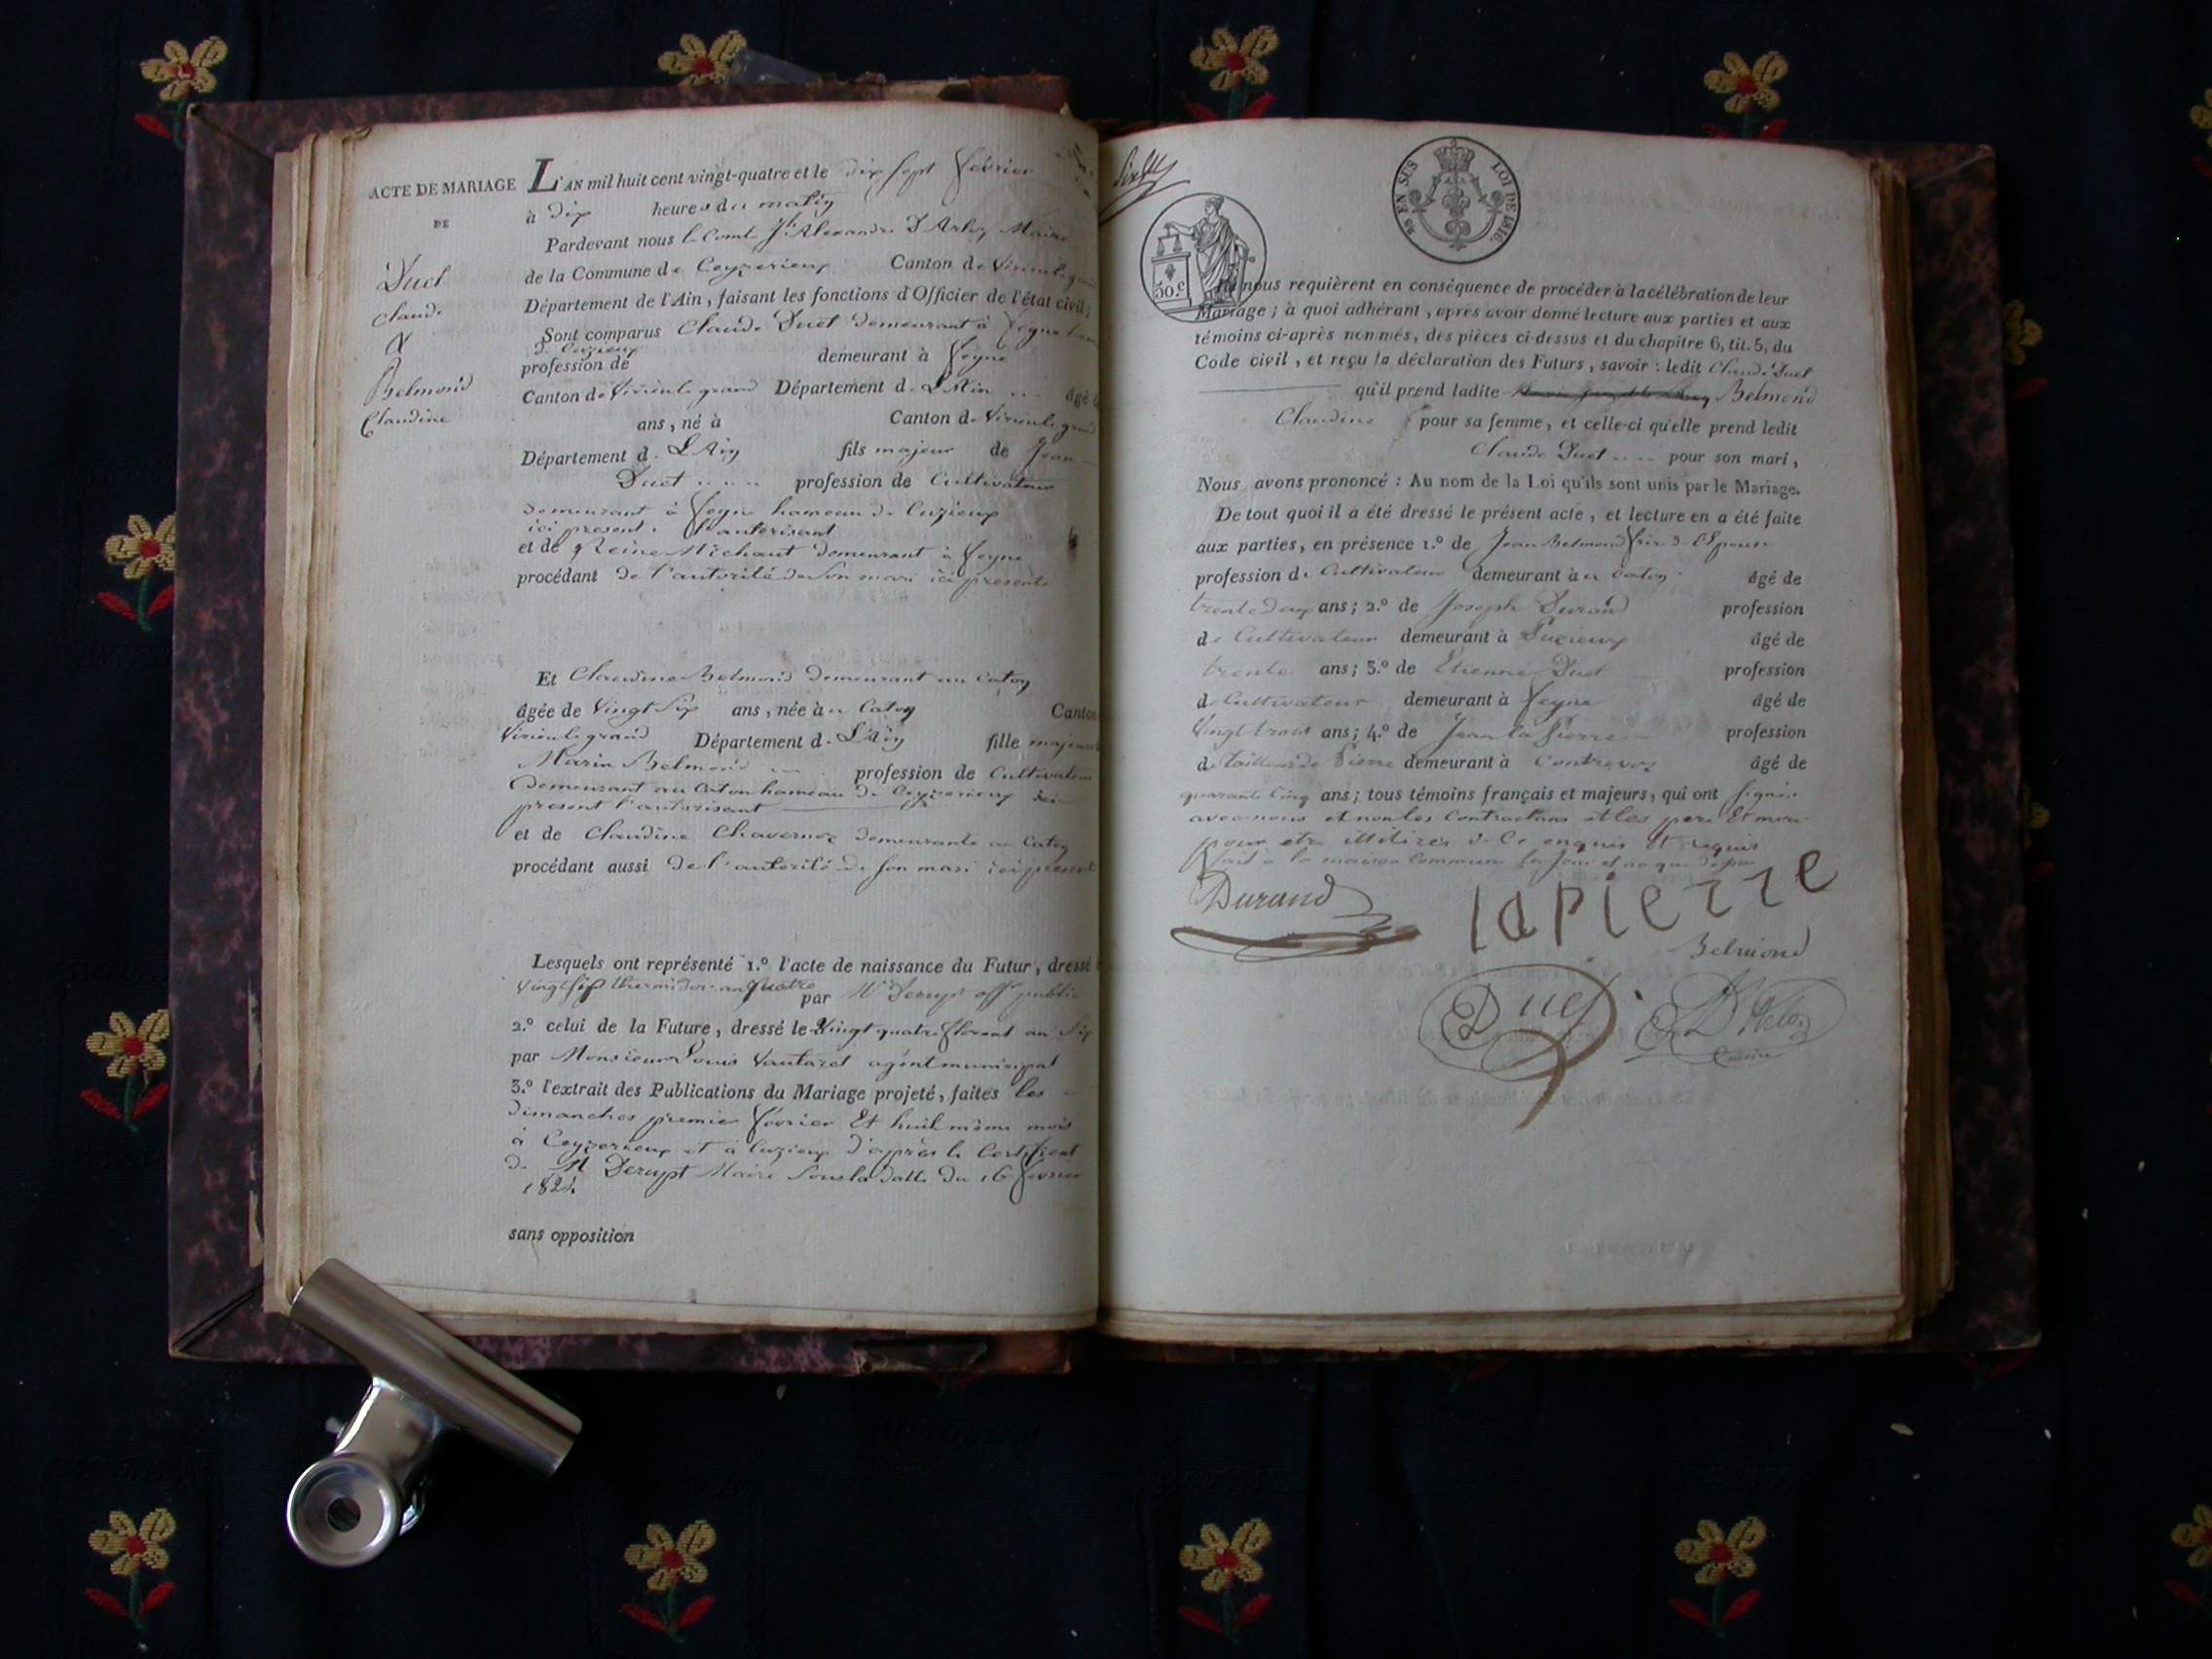 ACTE DE MARIAGE
DE
Duet
Claude
&
Belmond
Claudine
L'AN mil huit cent vingt-quatre et le dix sept février
à dix heures du matin
Pardevant nous le Comte Jh Alexandre D'Arloz Maire
de la Commune de Ceyzerieux Canton de Virieu le grand
Département de l'Ain, faisant les fonctions d'Officier de l'état civil,
Sont comparus Claude Duet demeurant à Vogne
de Cuzieux
profession de demeurant à Vogne
Canton de Virieu le grand Département de L'Ain ... âgé
ans, né à Canton de Virieu le grand
Département de L'Ain fils majeur de Jean
Duet ..... profession de Cultivateur
demeurant à Vogne hameau de Cuzieux
ici présent, l'autorisant
et de Reine Michaut demeurant à Vogne
procédant de l'autorité de son mari ici présente
Et Claudine Belmond demeurant au Caton
âgée de Vingt six ans, née au Caton Canton
Virieu le grand Département de L'Ain fille majeure
Marin Belmond ... profession de Cultivateur
demeurant au Caton hameau de Ceyzerieux ici
présent l'autorisant
et de Claudine Chavernoz demeurante au Caton
procédant aussi de l'autorité de son mari ici présent
Lesquels ont représenté 1.º l'acte de naissance du Futur, dressé
Vingt six thermidor an quatre par Mr Derupt offr public
2.º celui de la Future, dressé le Vingt quatre floreal an Six
par Monsieur Louis Vautaret agent municipal
3.º l'extrait des Publications du Mariage projeté, faites les
dimanches premier février Et huit même mois
à Ceyzerieux et à Cuzieux d'après le Certificat
de M Derupt Maire sous la datte du 16 février
1824
sans opposition
50 c
80 EN SUS LOI DE 1816.
Ils nous requièrent en conséquence de procéder à la célébration de leur
Mariage ; à quoi adhérant, après avoir donné lecture aux parties et aux
témoins ci-après nommés, des pièces ci-dessus et du chapitre 6, tit. 5, du
Code civil, et reçu la déclaration des Futurs, savoir : ledit Claude Duet
qu'il prend ladite Belmond
Claudine pour sa femme, et celle-ci qu'elle prend ledit
Claude Duet .... pour son mari,
Nous avons prononcé : Au nom de la Loi qu'ils sont unis par le Mariage.
De tout quoi il a été dressé le présent acte, et lecture en a été faite
aux parties, en présence 1.º de Jean Belmond frère de l'Epouse
profession de Cultivateur demeurant au Caton âgé de
trente deux ans ; 2.º de Joseph Durand profession
de Cultivateur demeurant à Cuzieux âgé de
trente ans ; 3.º de Etienne Duet profession
de Cultivateur demeurant à Vogne âgé de
Vingt trois ans ; 4.º de Jean la Pierre profession
de tailleur de Pierre demeurant à Contrevoz âgé de
quarante Cinq ans ; tous témoins français et majeurs, qui ont signés
avec nous et non les Contractans et les pere Et mere
pour etre illitires de ce enquis Et requis
fait à la maison Commune les jour et an que dessus
Durand
lapierre
Belmond
Duet
D'Arloz
maire